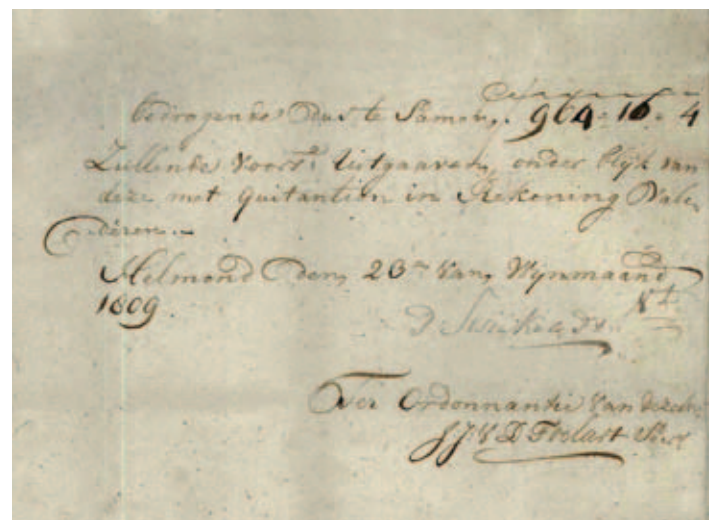 bedragende dus te Samen, 964 - 16 - 4
Zullende voors: Uitgaaven, onder blijk van
deze met quitantien in Rekening Vale
deren.
Helmond den, 23en van, Wynmaand
1809
Ter Ordonnantie van dezelve
Secr